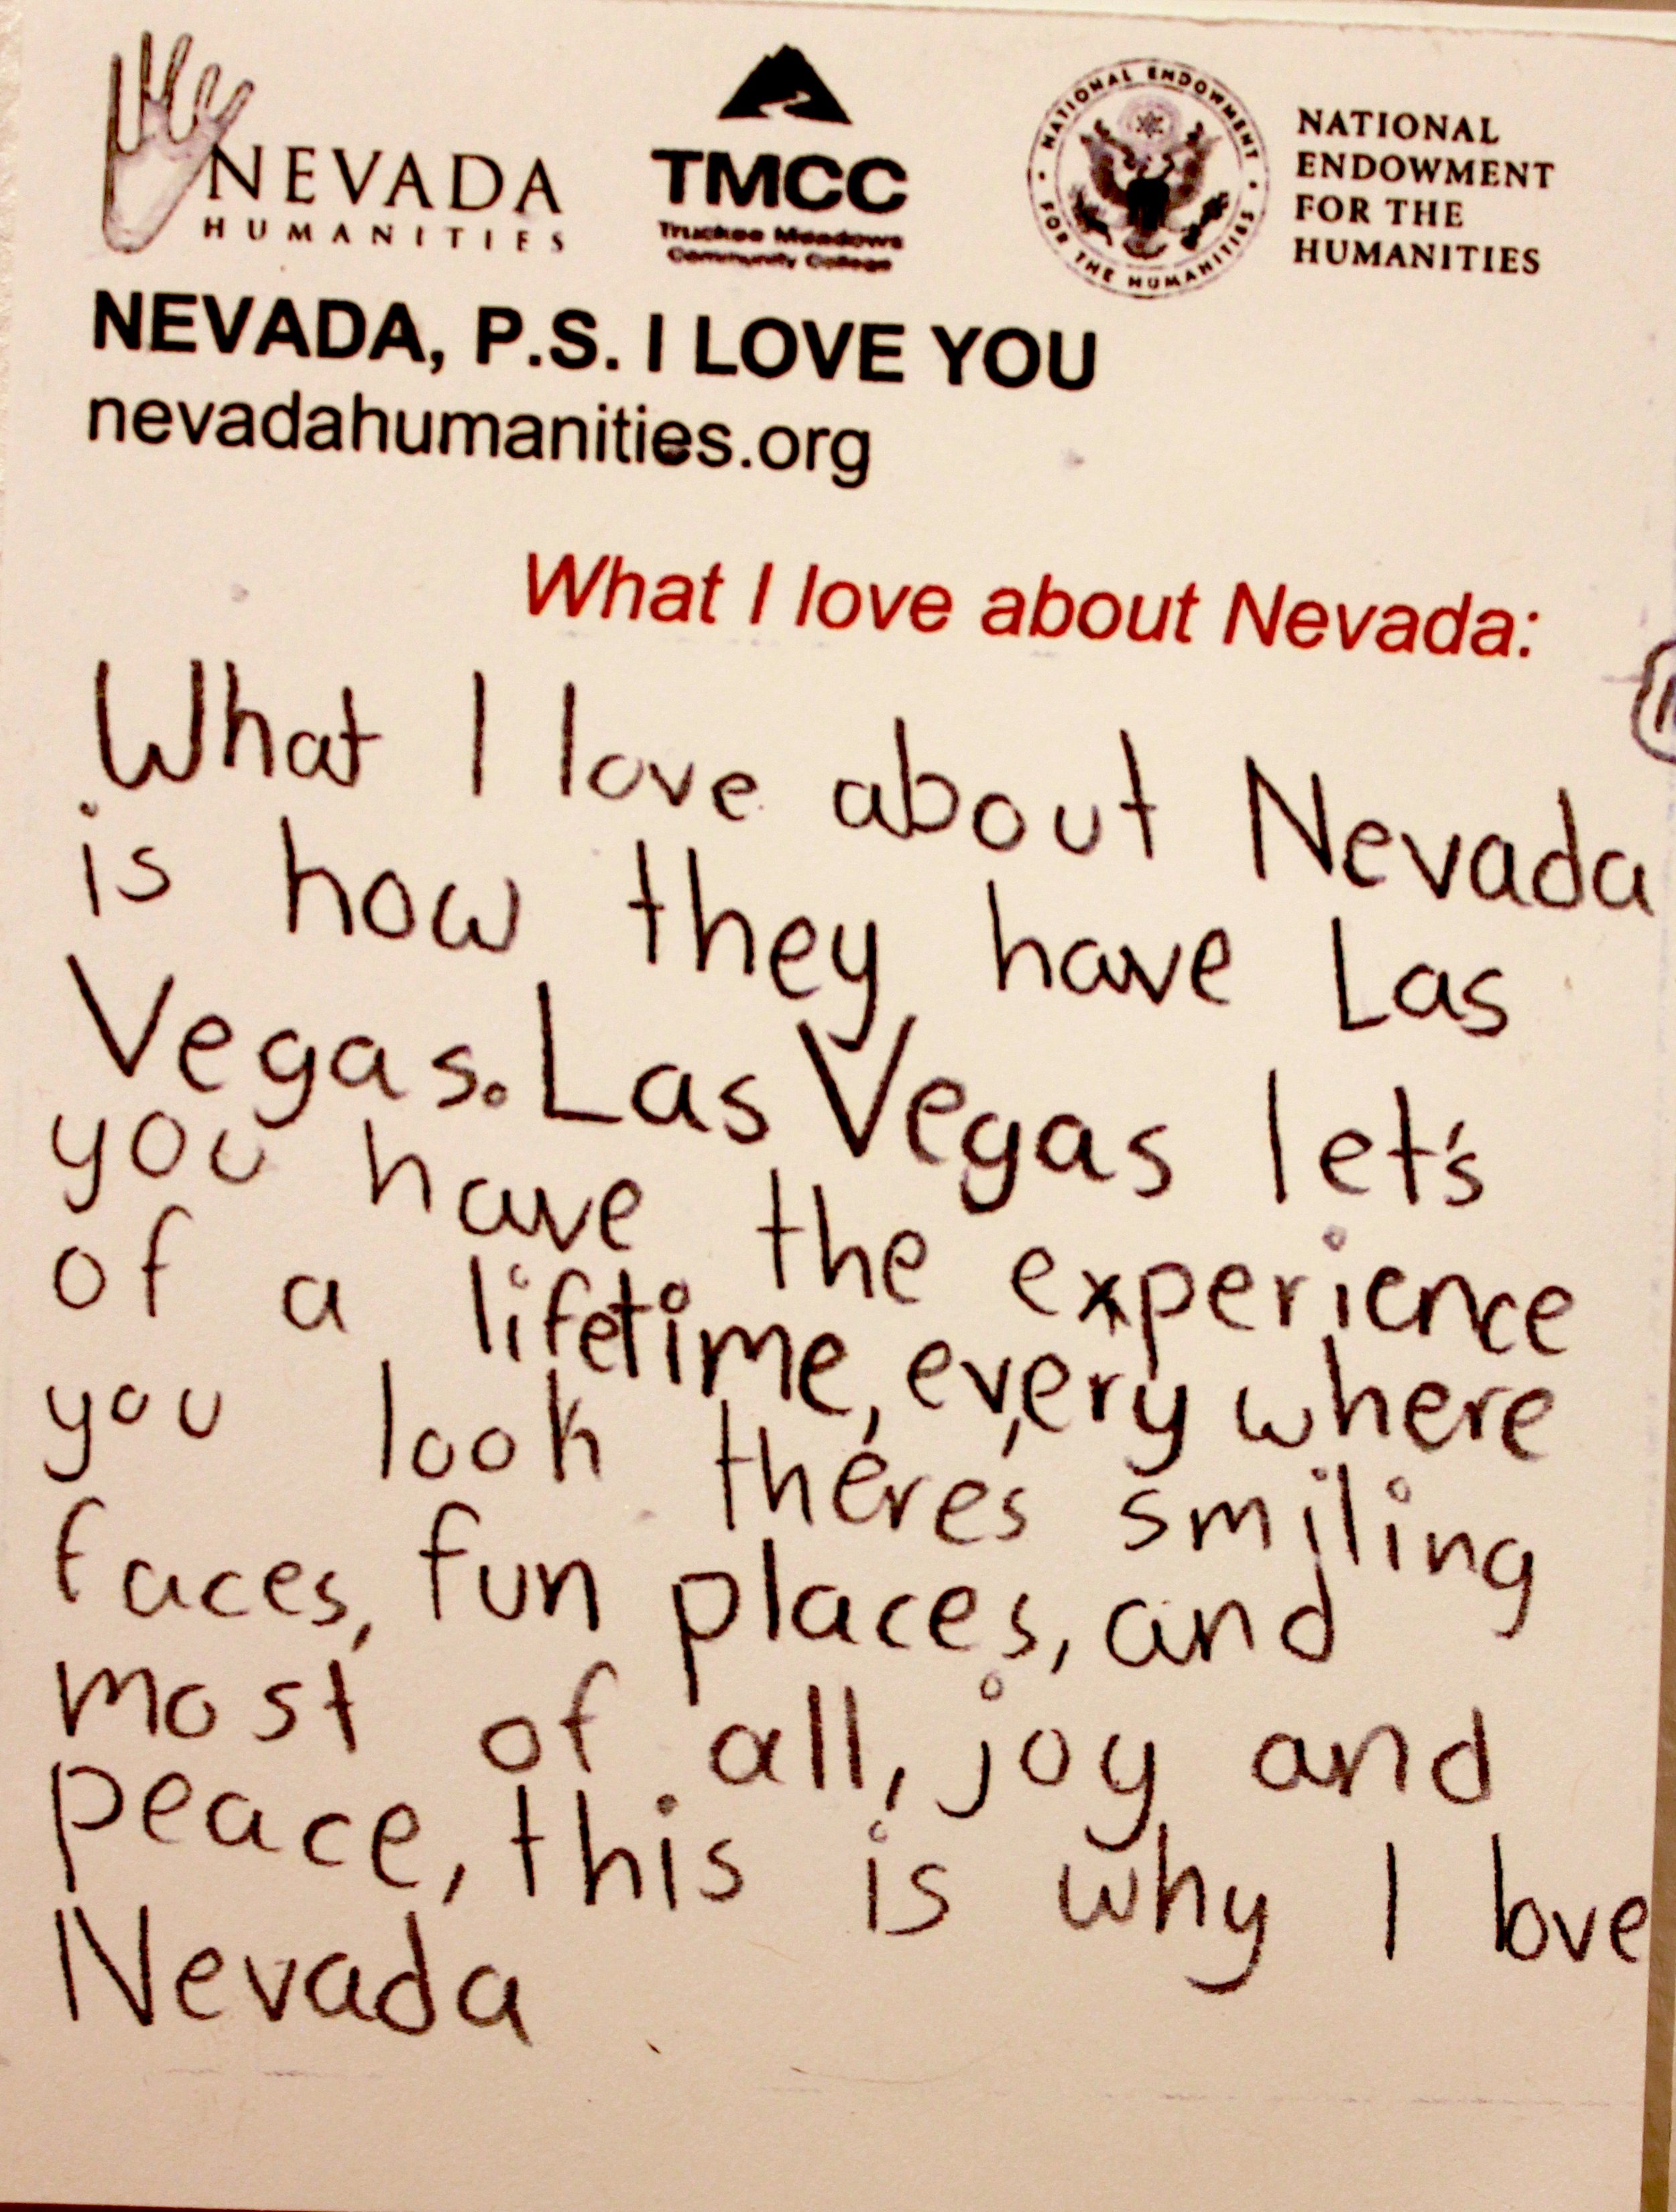 NEVADA
HUMANITIES
TMCC
Truckee Meadows
Community College
NATIONAL ENDOWMENT FOR THE HUMANITIES
NATIONAL
ENDOWMENT
FOR THE
HUMANITIES
NEVADA, P.S. I LOVE YOU
nevadahumanities.org
What I love about Nevada:
What I love about Nevada
is how they have Las
Vegas. Las Vegas let's
you have the experience
of a lifetime, every where
you look there's smiling
faces, fun places, and
most of all, joy and
peace, this is why I love
Nevada